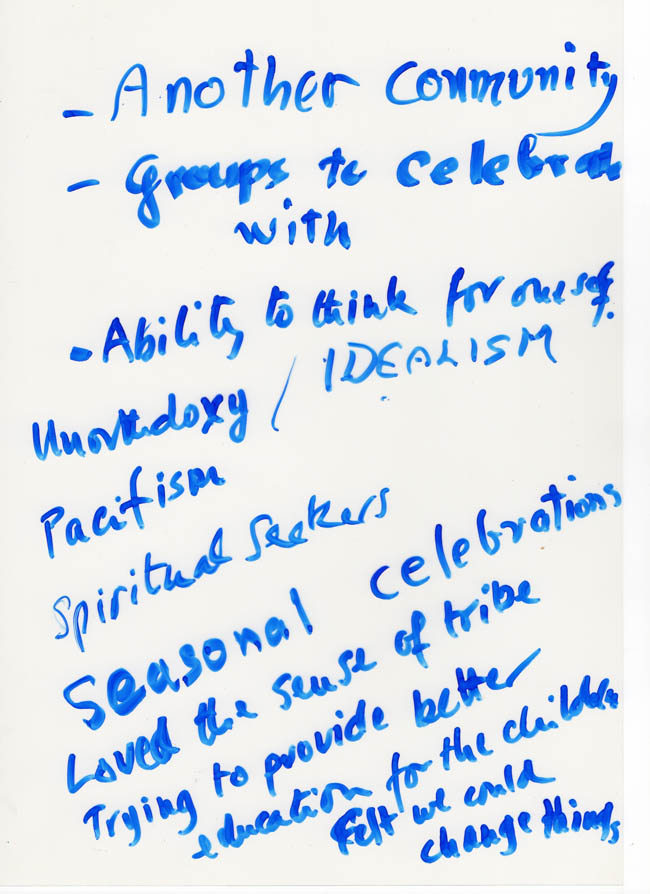 - Another Community
- Groups to celebrate
with
• Ability to think for oneself.
Unorthdoxy / IDEALISM
Pacifism
Spiritual Seekers
Seasonal celebrations
Loved the sense of tribe
Trying to provide better
education for the children
Felt we could
change things